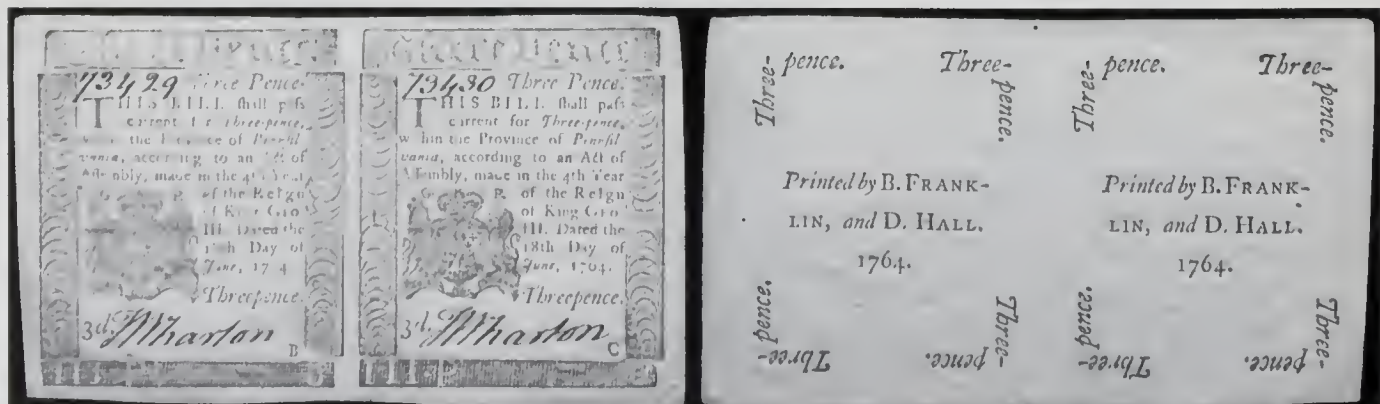 Three Pence.
73429 Three Pence.
THIS BILL ſhall paſs
current for Three-pence,
the Province of Pennſil
vania, according to an Act of
Aſſembly, made in the 4th Year
of the Reign
of King GEO
III. Dated the
18th Day of
June, 1764.
Threepence.
3d. Wharton
B
Three Pence.
73480 Three Pence.
THIS BILL ſhall paſs
current for Three-pence,
within the Province of Pennſil
vania, according to an Act of
Aſſembly, made in the 4th Year
G. R. of the Reign
of King GEO
III. Dated the
18th Day of
June, 1764.
Threepence.
3d. Wharton
C
Three-pence.
Three-pence.
Printed by B. FRANK-
LIN, and D. HALL.
1764.
Three-pence.
Three-pence.
Three-pence.
Three-pence.
Printed by B. FRANK-
LIN, and D. HALL.
1764.
Three-pence.
Three-pence.